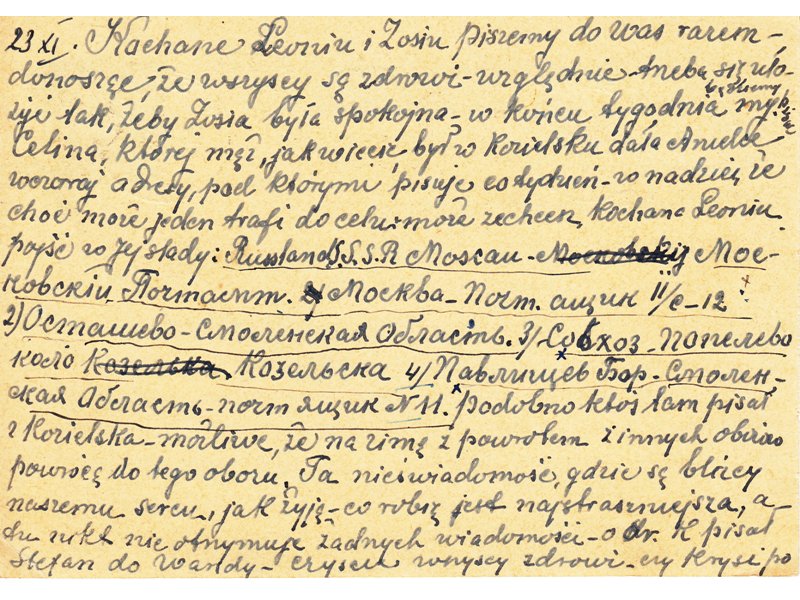 23 XI. Kochane Leoniu i Zosiu piszemy do Was razem-
donosząc, że wszyscy są zdrowi-względnie-trzeba się uło-
żyć tak, żeby Zosia była spokojna-w końcu tygodnia będziemy my.
Celina, której mąż, jak wiecie był w Kozielsku dała Anielce
wczoraj adresy, pod którymi pisuje co tydzień-w nadziei, że
choć może jeden trafi do celu-może zechcesz, Kochana Leoniu
pójść w jej ślady: Russland S.S.S.R Moscau-Московскij Мос-
ковскій Почтамт. 2/ Москва-Почт. ящик 11/с-12
2) Осташево-Смоленская Область. 3/ Совхоз-Попелево
коло Козелька. Козельска 4/ Павлищев Бор-Смолен-
ская Область-почт ящик N 11. Podobno ktoś tam pisał
z Kozielska-możliwe, że na zimę z powrotem z innych
powrócą do tego obozu. Ta nieświadomość, gdzie są bliscy
naszemu sercu, jak żyją-co robią jest najstraszniejsza, a-
tu nikt nie otrzymuje żadnych wiadomości-o dr. K pisał
Stefan do Wandy-czyście wszyscy zdrowi-czy Krysi po